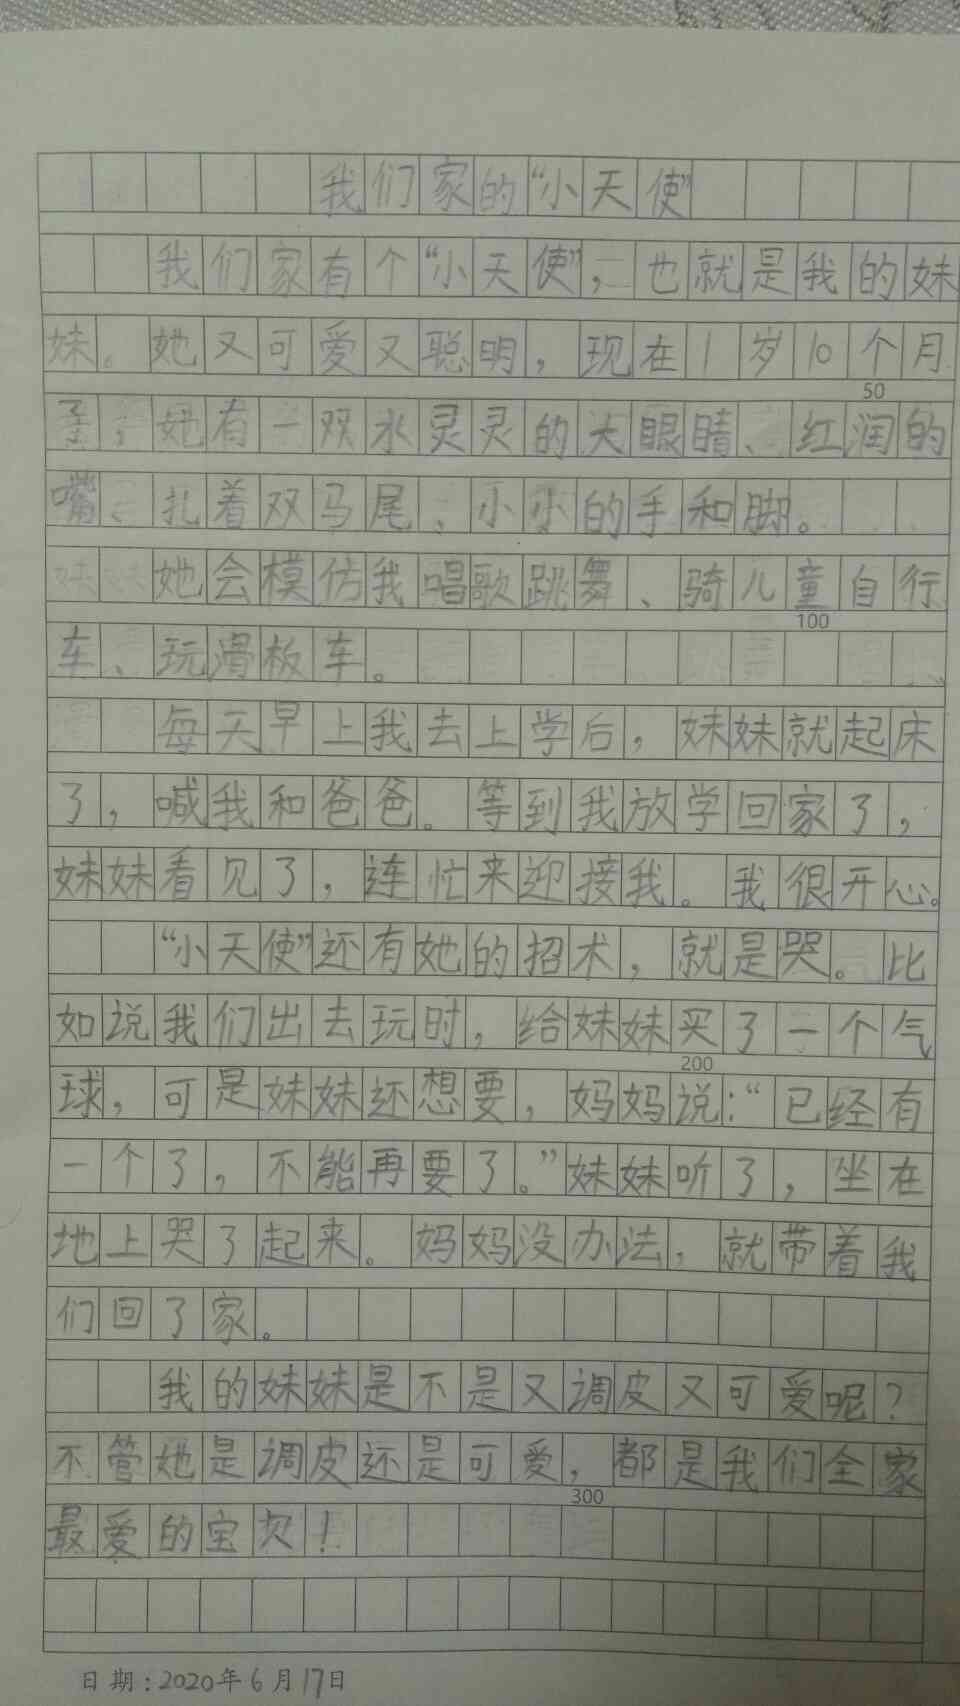 我们家的“小天使”
我们家有个“小天使”，也就是我的妹
妹。她又可爱又聪明，现在1岁10个月
50
了，她有一双水灵灵的大眼睛、红润的
嘴、扎着双马尾、小小的手和脚。
她会模仿我唱歌跳舞、骑儿童自行
100
车、玩滑板车。
每天早上我去上学后，妹妹就起床
了，喊我和爸爸。等到我放学回家了，
妹妹看见了，连忙来迎接我。我很开心。
“小天使”还有她的招术，就是哭。比
如说我们出去玩时，给妹妹买了一个气
200
球，可是妹妹还想要，妈妈说：“已经有
一个了，不能再要了。”妹妹听了，坐在
地上哭了起来。妈妈没办法，就带着我
们回了家。
我的妹妹是不是又调皮又可爱呢？
不管她是调皮还是可爱，都是我们全家
300
最爱的宝贝！
日期：2020年6月17日